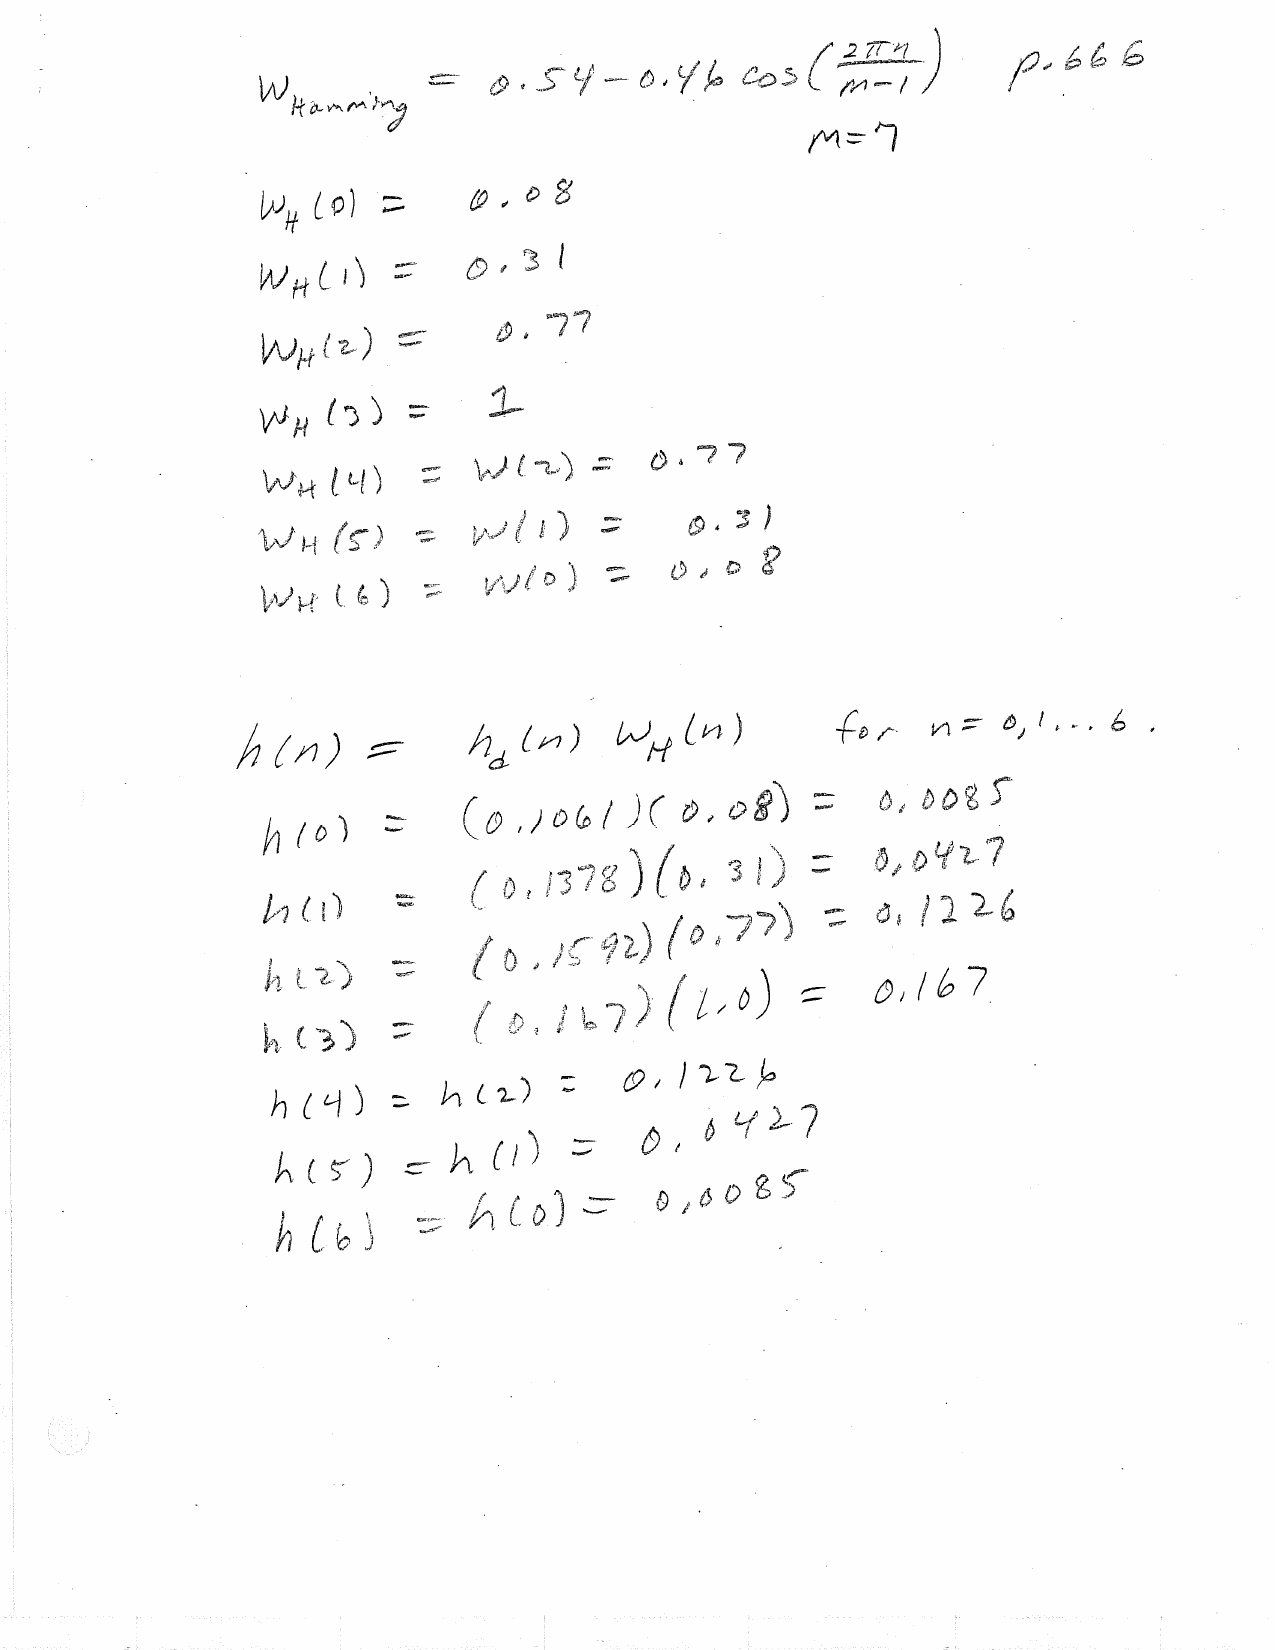 W_Hamming = 0.54 - 0.46 cos(2πn/M-1) p.666
M=7
W_H(0) = 0.08
W_H(1) = 0.31
W_H(2) = 0.77
W_H(3) = 1
W_H(4) = W(2) = 0.77
W_H(5) = W(1) = 0.31
W_H(6) = W(0) = 0.08
h(n) = h_d(n) W_H(n) for n = 0,1...6.
h(0) = (0.1061)(0.08) = 0.0085
h(1) = (0.1378)(0.31) = 0.0427
h(2) = (0.1592)(0.77) = 0.1226
h(3) = (0.167)(1.0) = 0.167
h(4) = h(2) = 0.1226
h(5) = h(1) = 0.0427
h(6) = h(0) = 0.0085